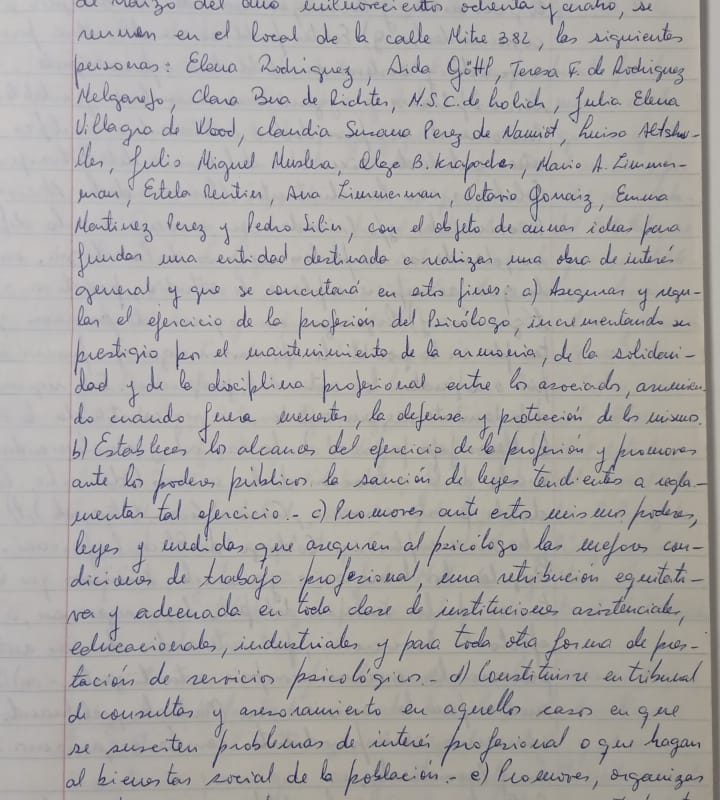 de marzo del año milnovecientos ochenta y cuatro, se
reunen en el local de la calle Mitre 382, las siguientes
personas: Elena Rodriguez, Aida Göttl, Teresa F. de Rodriguez
Melgarejo, Clara Bua de Richter, N.S.C. de Lolich, Julia Elena
Villagra de Wood, Claudia Susana Perez de Namiot, Luisa Altshu-
ller, Julio Miguel Muslera, Olga B. Krapodes, Mario A. Zimmer-
man, Estela Rentier, Ana Zimmerman, Octavio Gonaiz, Emma
Martinez Perez y Pedro Silin, con el objeto de aunar ideas para
fundar una entidad destinada a realizar una obra de interés
general y que se concretará en estos fines: a) Asegurar y regu-
lar el ejercicio de la profesión del Psicólogo, incrementando su
prestigio por el mantenimiento de la armonía, de la solidari-
dad y de la disciplina profesional entre los asociados, asumien-
do cuando fuera menester, la defensa y protección de los mismos.
b) Establecer los alcances del ejercicio de la profesión y promover
ante los poderes públicos la sanción de leyes tendientes a regla-
mentar tal ejercicio.- c) Promover ante estos mismos poderes,
leyes y medidas que aseguren al psicólogo las mejores con-
diciones de trabajo profesional, una retribución equitati-
va y adecuada en toda clase de instituciones asistenciales,
educacionales, industriales y para toda otra forma de pres-
tación de servicios psicológicos.- d) Constituirse en tribunal
de consultas y asesoramiento en aquellos casos en que
se susciten problemas de interés profesional o que hagan
al bienestar social de la población.- e) Promover, organizar